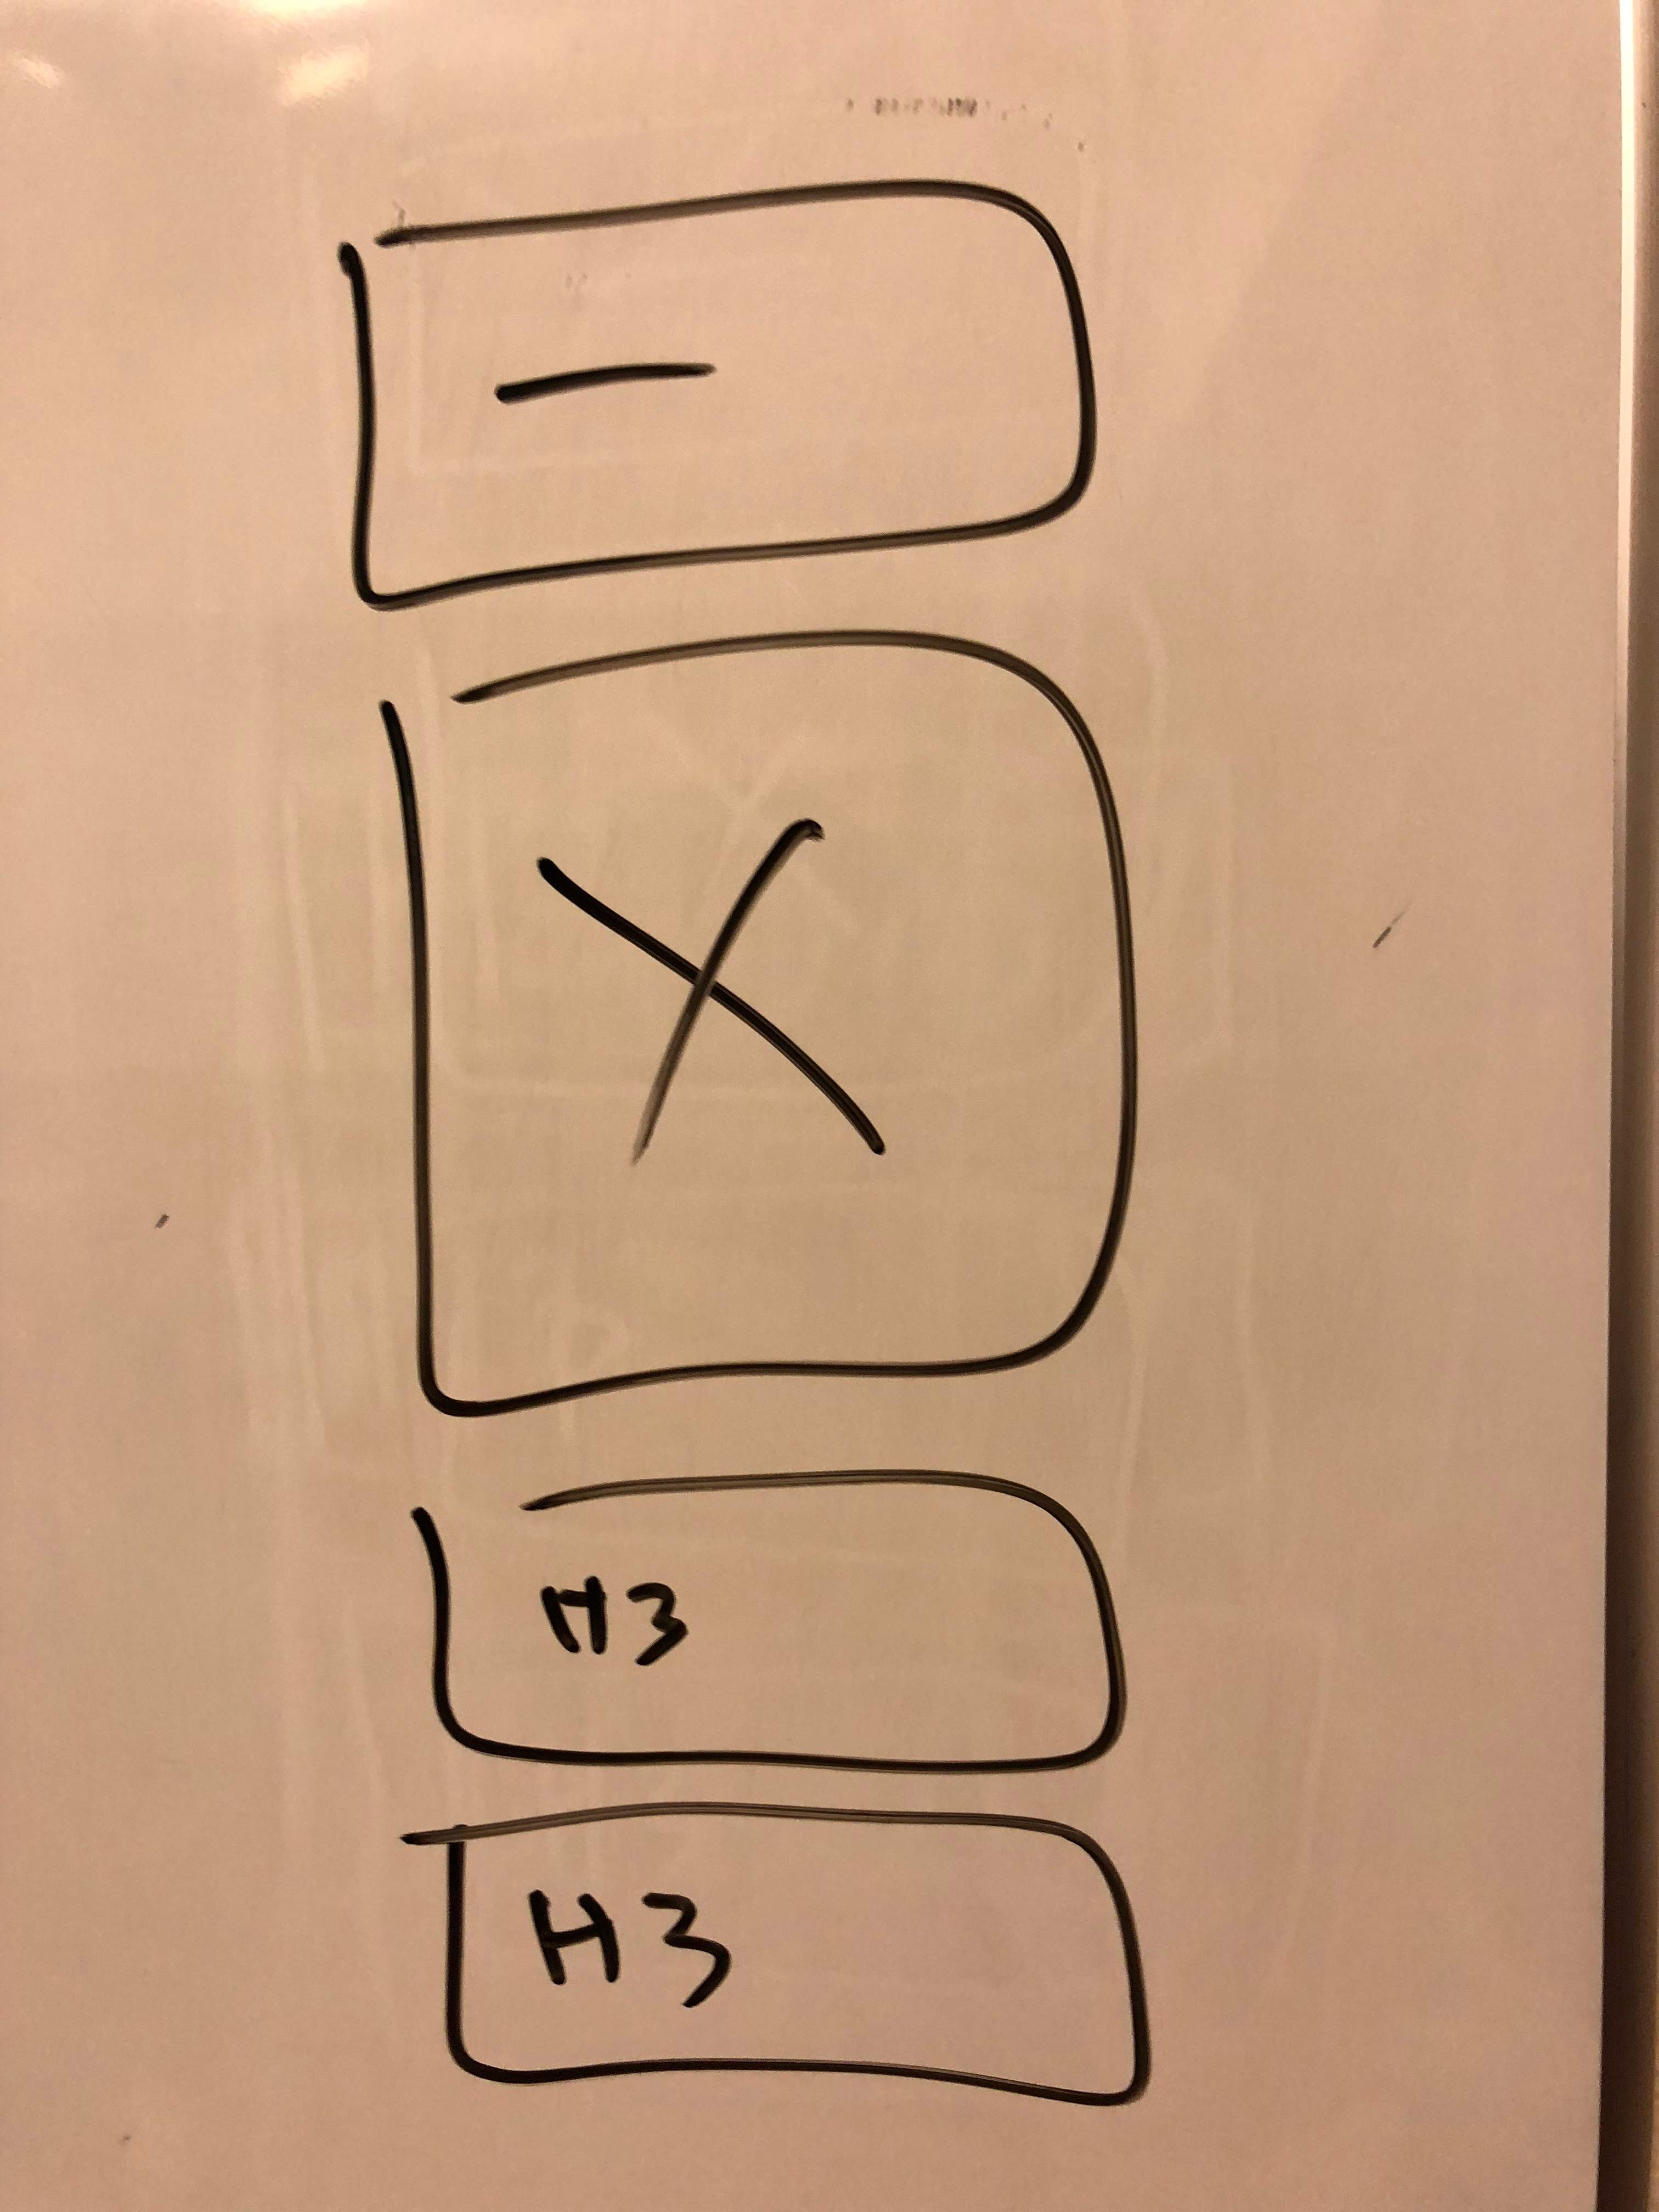 —
X
H3
H3